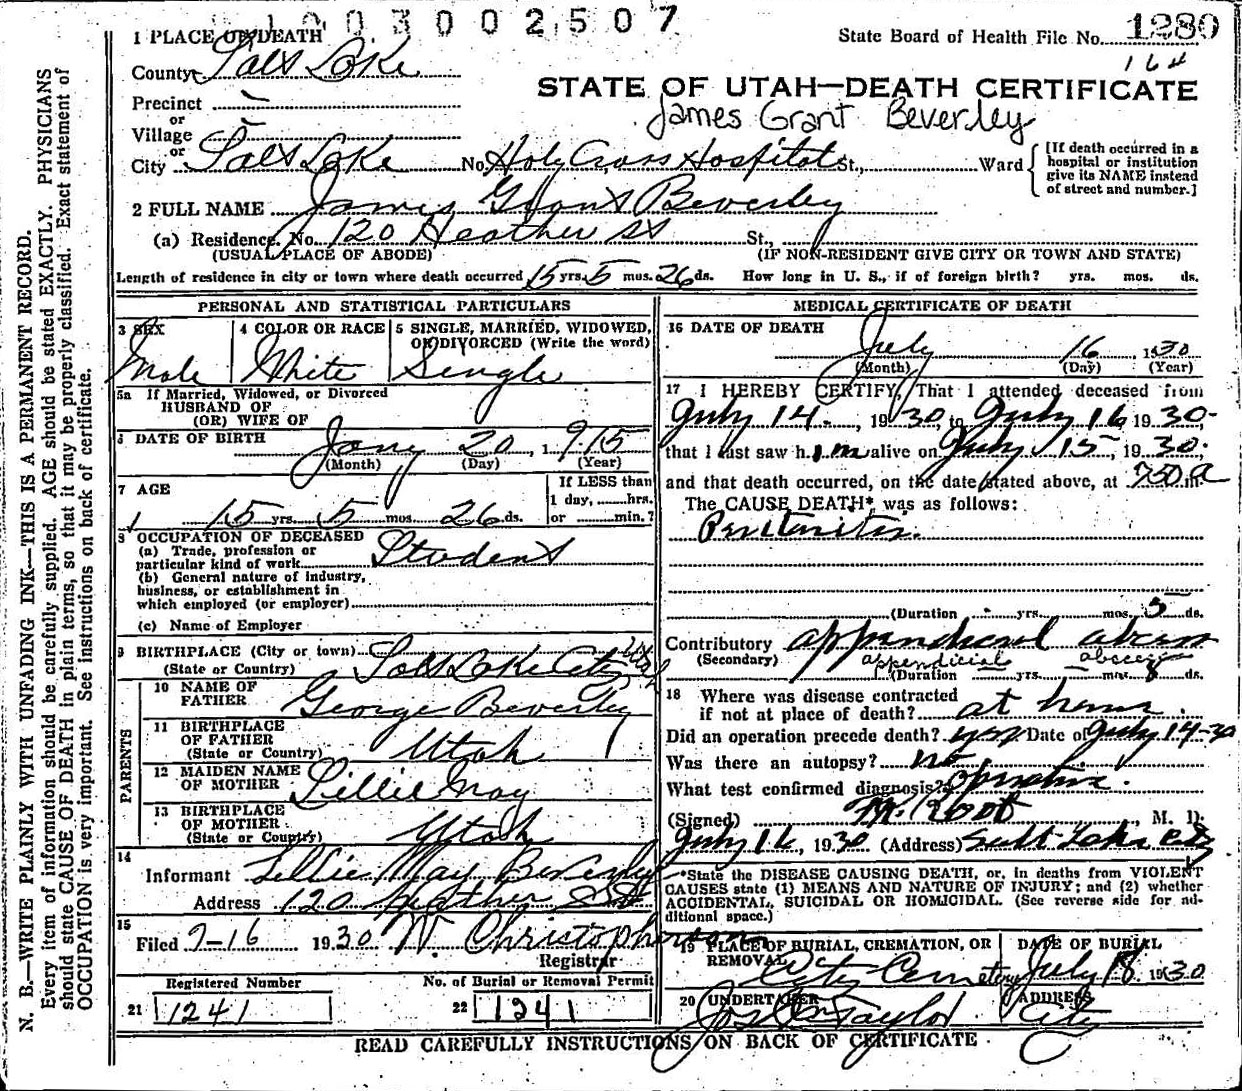 1003002507
State Board of Health File No. 1280
164
STATE OF UTAH—DEATH CERTIFICATE
James Grant Beverley
1 PLACE OF DEATH
County Salt Lake
Precinct —
or
Village —
or
City Salt Lake No. Holy Cross Hospital St., Ward
[If death occurred in a
hospital or institution
give its NAME instead
of street and number.]
2 FULL NAME James Grant Beverley
(a) Residence. No. 120 Heather St St.,
(USUAL PLACE OF ABODE) (IF NON-RESIDENT GIVE CITY OR TOWN AND STATE)
Length of residence in city or town where death occurred 15 yrs. 5 mos. 26 ds. How long in U. S., if of foreign birth? yrs. mos. ds.
PERSONAL AND STATISTICAL PARTICULARS
3 SEX
Male
4 COLOR OR RACE
White
5 SINGLE, MARRIED, WIDOWED,
OR DIVORCED (Write the word)
Single
5a If Married, Widowed, or Divorced
HUSBAND OF
(OR) WIFE OF
6 DATE OF BIRTH
Jany 20, 1915
(Month) (Day) (Year)
7 AGE
15 yrs. 5 mos. 26 ds.
If LESS than
1 day, hrs.
or min.?
8 OCCUPATION OF DECEASED
(a) Trade, profession or
particular kind of work Student
(b) General nature of industry,
business, or establishment in
which employed (or employer)
(c) Name of Employer
9 BIRTHPLACE (City or town) Salt Lake City Utah
(State or Country)
PARENTS
10 NAME OF
FATHER George Beverley
11 BIRTHPLACE
OF FATHER
(State or Country) Utah
12 MAIDEN NAME
OF MOTHER Lillie May
13 BIRTHPLACE
OF MOTHER
(State or Country) Utah
14
Informant Lillie May Beverley
Address 120 Heather St
15
Filed 7-16 1930 W. Christopherson
Registrar
Registered Number
21 1241
No. of Burial or Removal Permit
22 1241
MEDICAL CERTIFICATE OF DEATH
16 DATE OF DEATH
July 16, 1930
(Month) (Day) (Year)
17 I HEREBY CERTIFY, That I attended deceased from
July 14, 1930 to July 16 1930,
that I last saw him alive on July 15, 1930;
and that death occurred, on the date stated above, at 750 a m.
The CAUSE DEATH* was as follows:
Peritonitis.
(Duration yrs. mos. 5 ds.
Contributory appendiceal abcess
(Secondary) appendicial abscess
(Duration yrs. mos. 8 ds.
18 Where was disease contracted
if not at place of death? at home.
Did an operation precede death? yes Date of July 14-30
Was there an autopsy? no
What test confirmed diagnosis? Operation.
(Signed) M. Root, M. D.
July 16, 1930 (Address) Salt Lake City
*State the DISEASE CAUSING DEATH, or, in deaths from VIOLENT
CAUSES state (1) MEANS AND NATURE OF INJURY; and (2) whether
ACCIDENTAL, SUICIDAL OR HOMICIDAL. (See reverse side for ad-
ditional space.)
19 PLACE OF BURIAL, CREMATION, OR
REMOVAL
City Cemetery
DATE OF BURIAL
July 18 1930
20 UNDERTAKER
Jos Wm Taylor
ADDRESS
City
READ CAREFULLY INSTRUCTIONS ON BACK OF CERTIFICATE
N. B.—WRITE PLAINLY WITH UNFADING INK—THIS IS A PERMANENT RECORD.
Every item of information should be carefully supplied. AGE should be stated EXACTLY. PHYSICIANS
should state CAUSE OF DEATH in plain terms, so that it may be properly classified. Exact statement of
OCCUPATION is very important. See instructions on back of certificate.